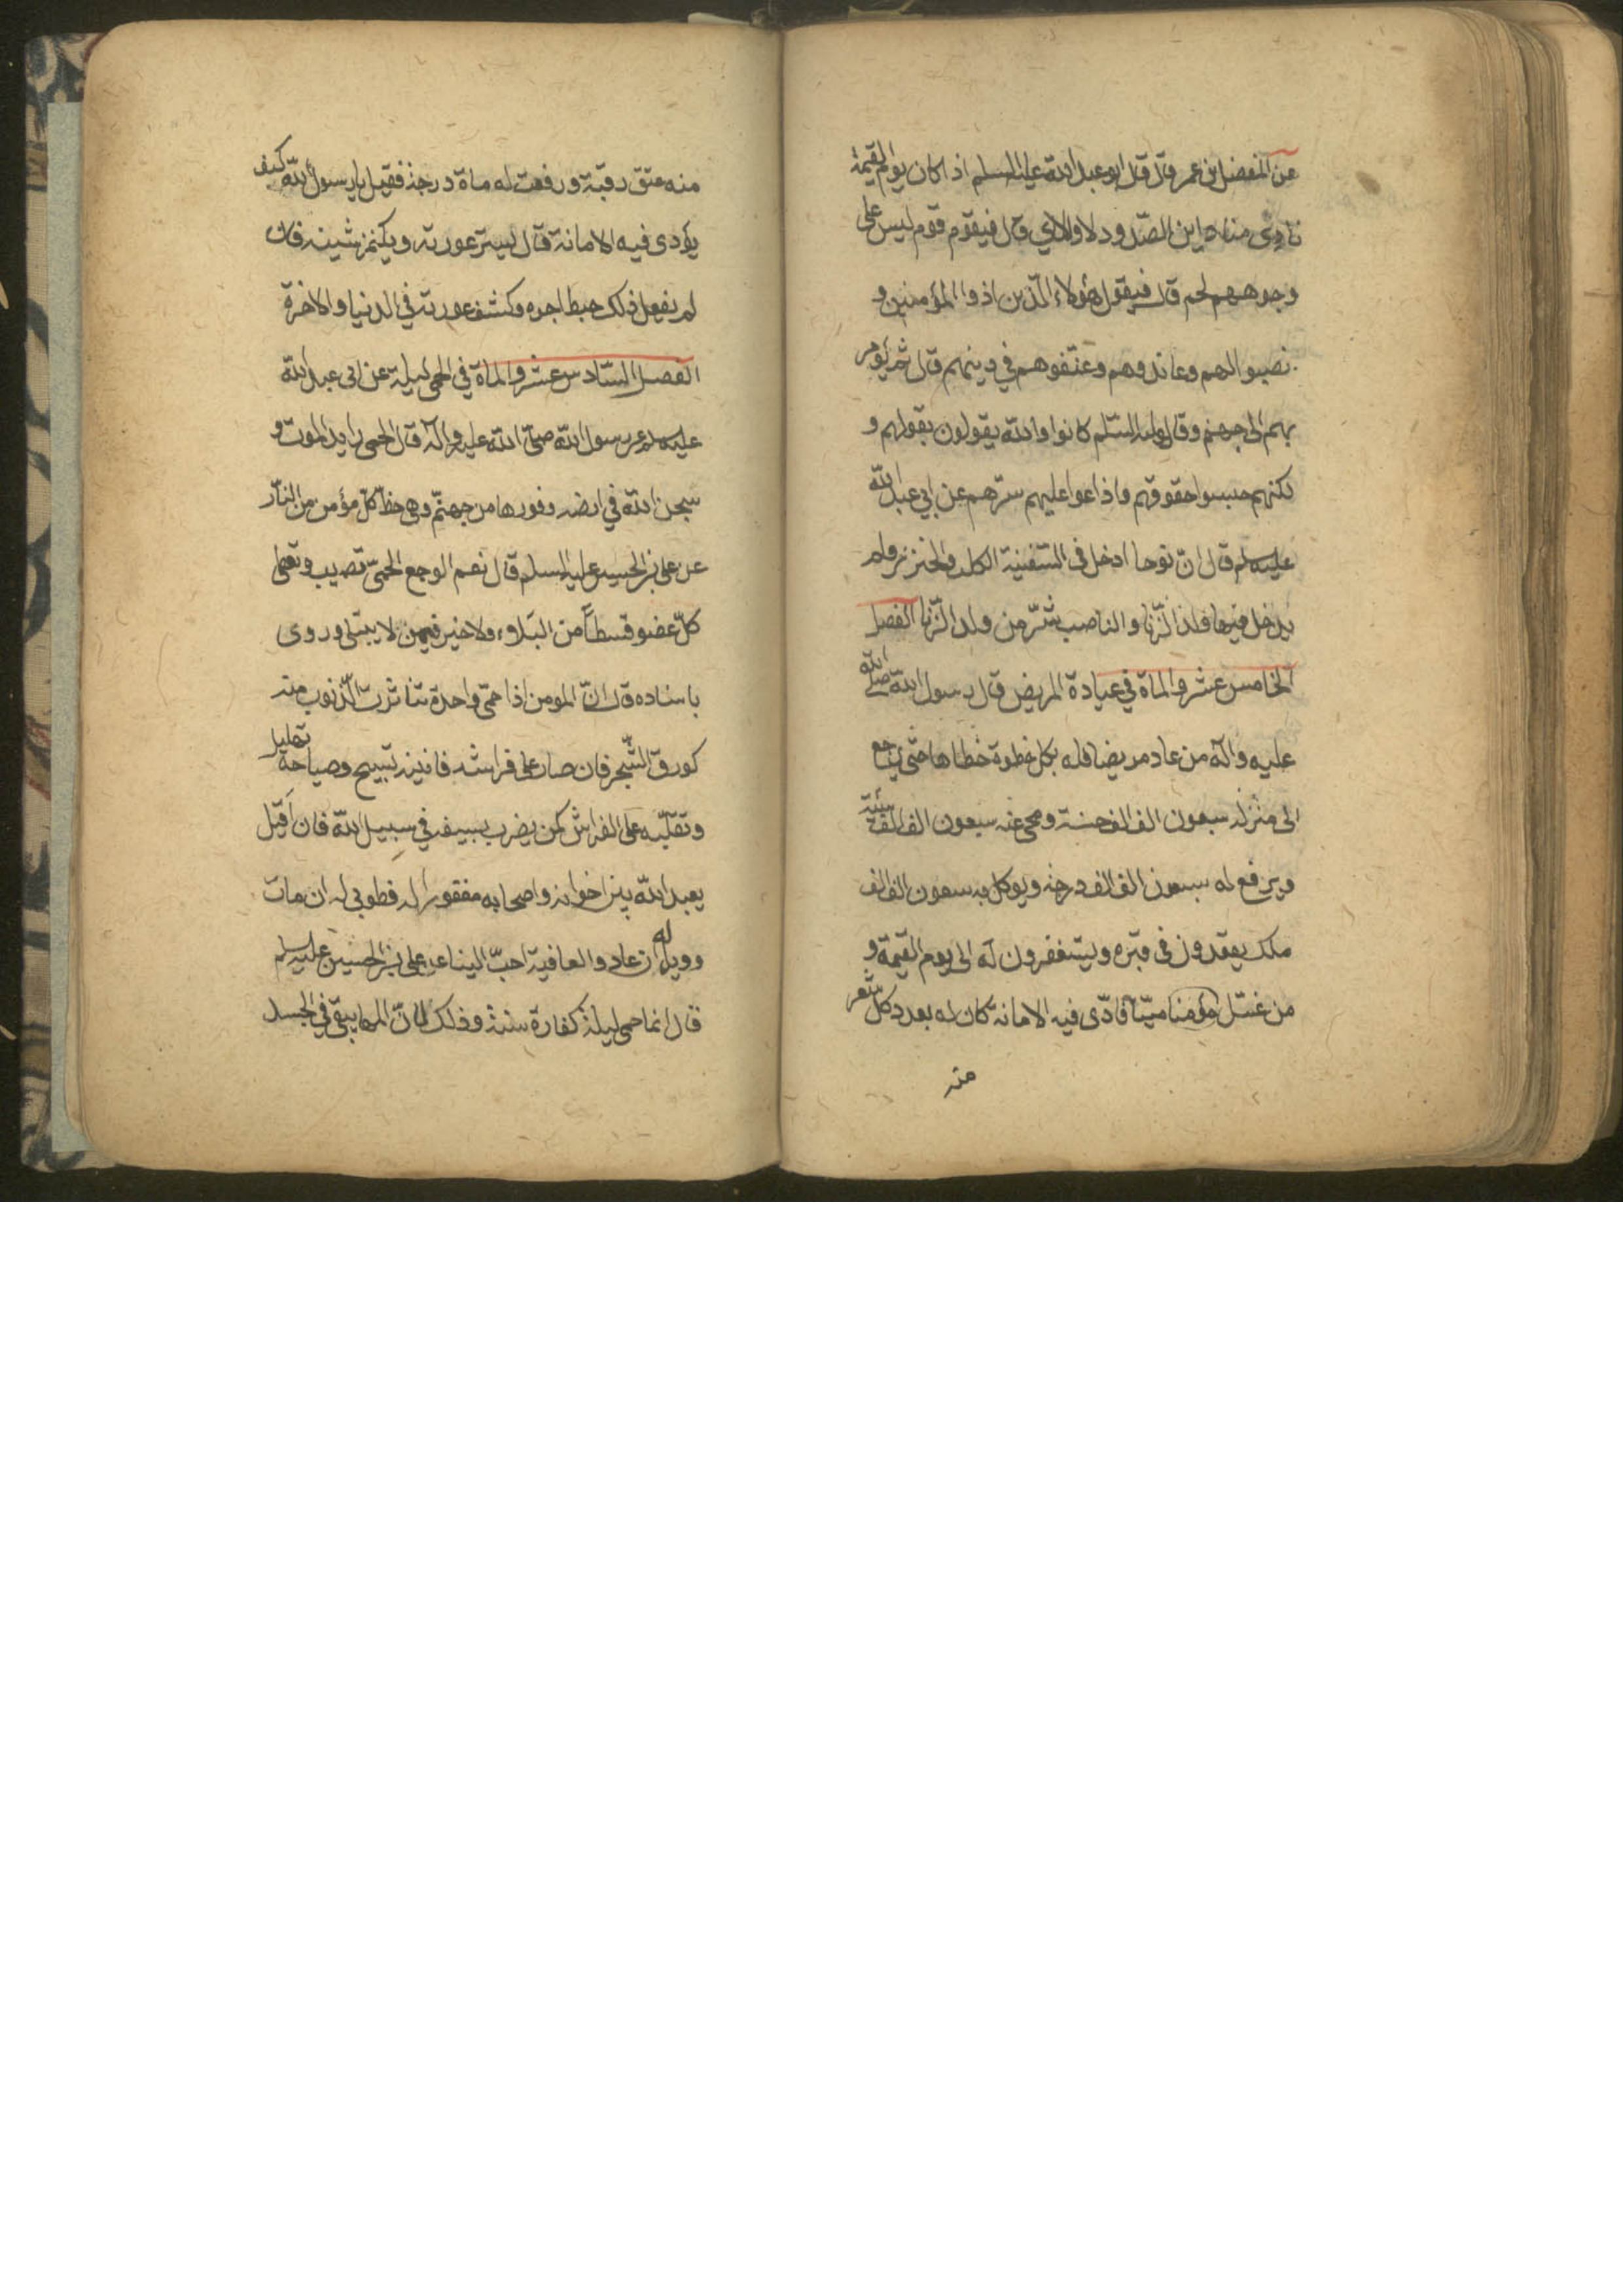 عن المفضل بن عمر قال قال ابو عبد الله عليه السلم اذا كان يوم القيمة
نادى مناد اين الصدود لاوليائي قال فيقوم قوم ليس على
وجوههم لحم قال فيقول هؤلاء الذين اذوا المؤمنين و
نصبوا لهم وعاندوهم وعنفوهم في دينهم قال ثم يؤمر
بهم الى جهنم وقال عليه السلم كانوا والله يقولون بقولهم و
لكنهم حبسوا حقوقهم واذاعوا عليهم سرهم عن ابي عبد الله
عليه السلم قال ان نوحا ادخل في السفينة الكلب والخنزير ولم
يدخل فيها ولد الزنا والناصب شر من ولد الزنا الفصل
الخامس عشر والماة في عيادة المريض قال رسول الله صلى الله
عليه وآله من عاد مريضا فله بكل خطوة خطاها حتى يرجع
الى منزله سبعون الف الف حسنة ومحى عنه سبعون الف الف سيئة
ويرفع له سبعون الف الف درجة ويوكل به سبعون الف الف
ملك يعودون في قبره ويستغفرون له الى يوم القيمة و
من غسل مؤمنا ميتا فادى فيه الامانة كان له بعدد كل شعر
منه
منه عتق رقبة ورفعت له ماة درجة فقيل يا رسول الله كيف
يؤدى فيه الامانة قال يستر عورته ويكتم شينه فان
لم يفعل ذلك حبط اجره وكشف عورته في الدنيا والاخرة
الفصل السادس عشر والماة في الحمى ليلة عن ابى عبد الله
عليه السلم عن رسول الله صلى الله عليه وآله قال الحمى رايد الموت و
سجن الله في ارضه وفورها من جهنم وهى حظ كل مؤمن من النار
عن على بن الحسين عليه السلم قال نعم الوجع الحمى تصيب وتعطى
كل عضو قسطا من البلاء ولا خير فيمن لا يبتلى وروى
باسناده قال ان المومن اذا حمى واحدة تناثرت الذنوب منه
كورق الشجر فان صار على فراشه فانينه تسبيح وصياحه تهليل
وتقلبه على الفراش كمن يضرب بسيفه في سبيل الله فان اقبل
يعبد الله بين اخوانه واصحابه مغفورا له فطوبى له ان مات
وويل له ان عاد والعافية احب الينا عن على بن الحسين عليه السلم
قال انما حمى ليلة كفارة سنة وذلك لان المها يبقى في الجسد